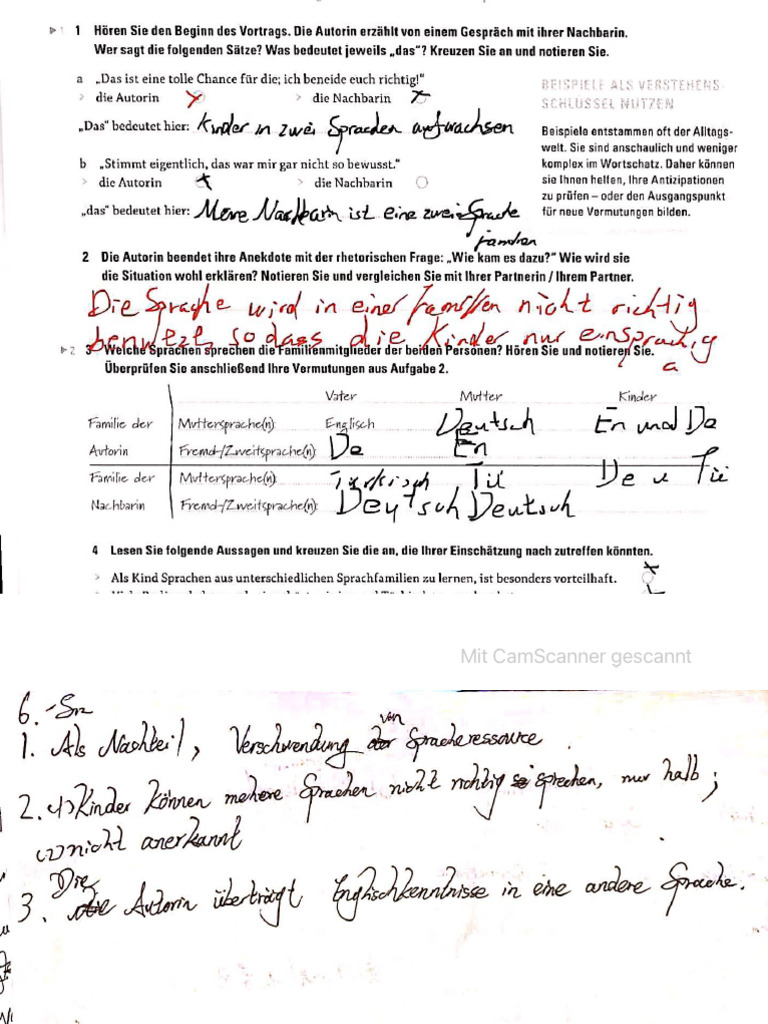 1 Hören Sie den Beginn des Vortrags. Die Autorin erzählt von einem Gespräch mit ihrer Nachbarin.
Wer sagt die folgenden Sätze? Was bedeutet jeweils „das“? Kreuzen Sie an und notieren Sie.
a „Das ist eine tolle Chance für die; ich beneide euch richtig!“
> die Autorin > die Nachbarin
„Das“ bedeutet hier: Kinder in zwei Sprachen aufwachsen
b „Stimmt eigentlich, das war mir gar nicht so bewusst.“
> die Autorin > die Nachbarin
„das“ bedeutet hier: Meine Nachbarin ist eine zwei Sprache
familien
BEISPIELE ALS VERSTEHENS-
SCHLÜSSEL NUTZEN
Beispiele entstammen oft der Alltags-
welt. Sie sind anschaulich und weniger
komplex im Wortschatz. Daher können
sie Ihnen helfen, Ihre Antizipationen
zu prüfen – oder den Ausgangspunkt
für neue Vermutungen bilden.
2 Die Autorin beendet ihre Anekdote mit der rhetorischen Frage: „Wie kam es dazu?“ Wie wird sie
die Situation wohl erklären? Notieren Sie und vergleichen Sie mit Ihrer Partnerin / Ihrem Partner.
Die Sprache wird in einer familien nicht richtig
benutzt, sodass die Kinder nur einsprachig
2 3 Welche Sprachen sprechen die Familienmitglieder der beiden Personen? Hören Sie und notieren Sie.
Überprüfen Sie anschließend Ihre Vermutungen aus Aufgabe 2.
Vater Mutter Kinder
Familie der Muttersprache(n): Englisch Deutsch En und De
Autorin Fremd-/Zweitsprache(n): De En
Familie der Muttersprache(n): Türkisch Tü De u Tü
Nachbarin Fremd-/Zweitsprache(n): Deutsch Deutsch
4 Lesen Sie folgende Aussagen und kreuzen Sie die an, die Ihrer Einschätzung nach zutreffen könnten.
> Als Kind Sprachen aus unterschiedlichen Sprachfamilien zu lernen, ist besonders vorteilhaft.
Mit CamScanner gescannt
6.
1. Als Nachteil, Verschwendung von Spracheressource.
2. (1) Kinder können mehere Sprachen nicht richtig sprechen, nur halb;
(2) nicht anerkannt
3. Die Autorin überträgt Englischkenntnisse in eine andere Sprache.